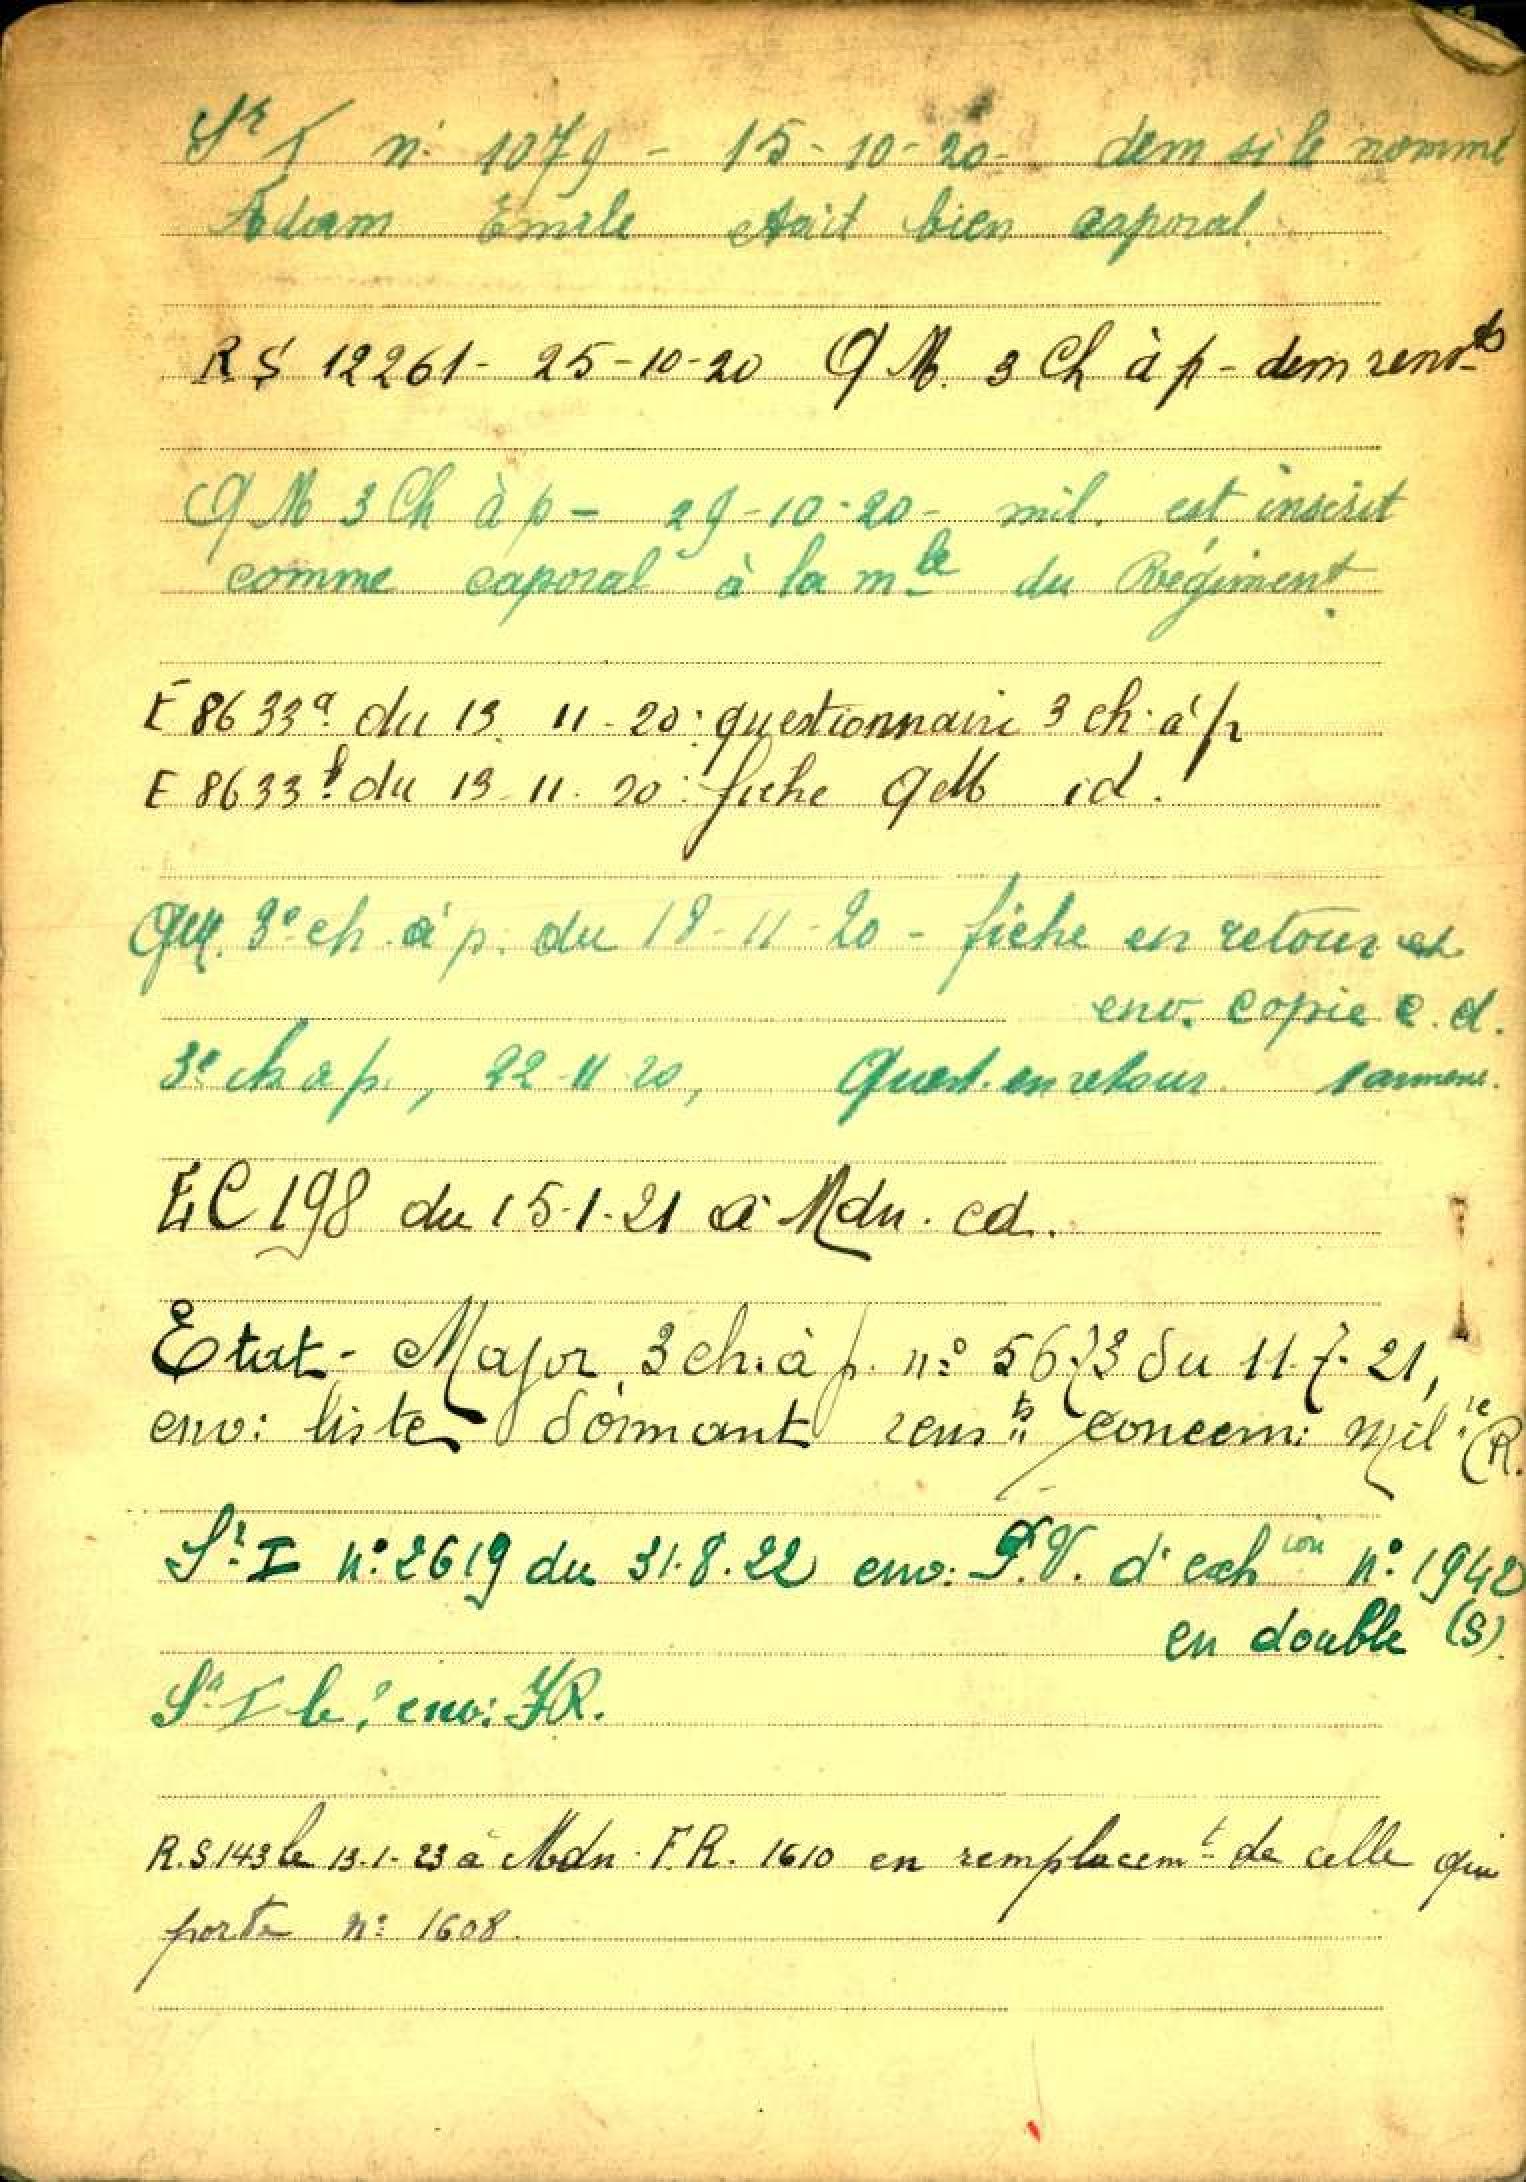 Sr I n° 1079 - 15-10-20- dem si le nommé
Adam Emile était bien caporal.
RS 12261- 25-10-20 QM. 3 Ch à p - dem rensts
QM 3 Ch à p - 29-10-20- mil. est inscrit
comme caporal à la mle du Régiment.
E 8633a du 13. 11-20: questionnaire 3 ch. à p
E 8633b du 13-11-20: fiche QM id.
QM. 3e ch. à p. du 18-11-20 - fiche en retour et
env. copie c. d.
3e ch à p., 22-11-20, Quest. en retour
EC 198 du 15-1-21 à Mdn. cd.
Etat-Major 3 ch. à p. n° 5673 du 11-7-21,
env: liste donnant rensts concern: milre (R.
Sr I n° 2619 du 31.8.22 env: P.V. d'exhion n° 1942
en double (S).
Sr I le ? env: FR.
R.S.143 le 13-1-23 à Mdn. F.R. 1610 en remplacemt de celle qui
porte n° 1608.